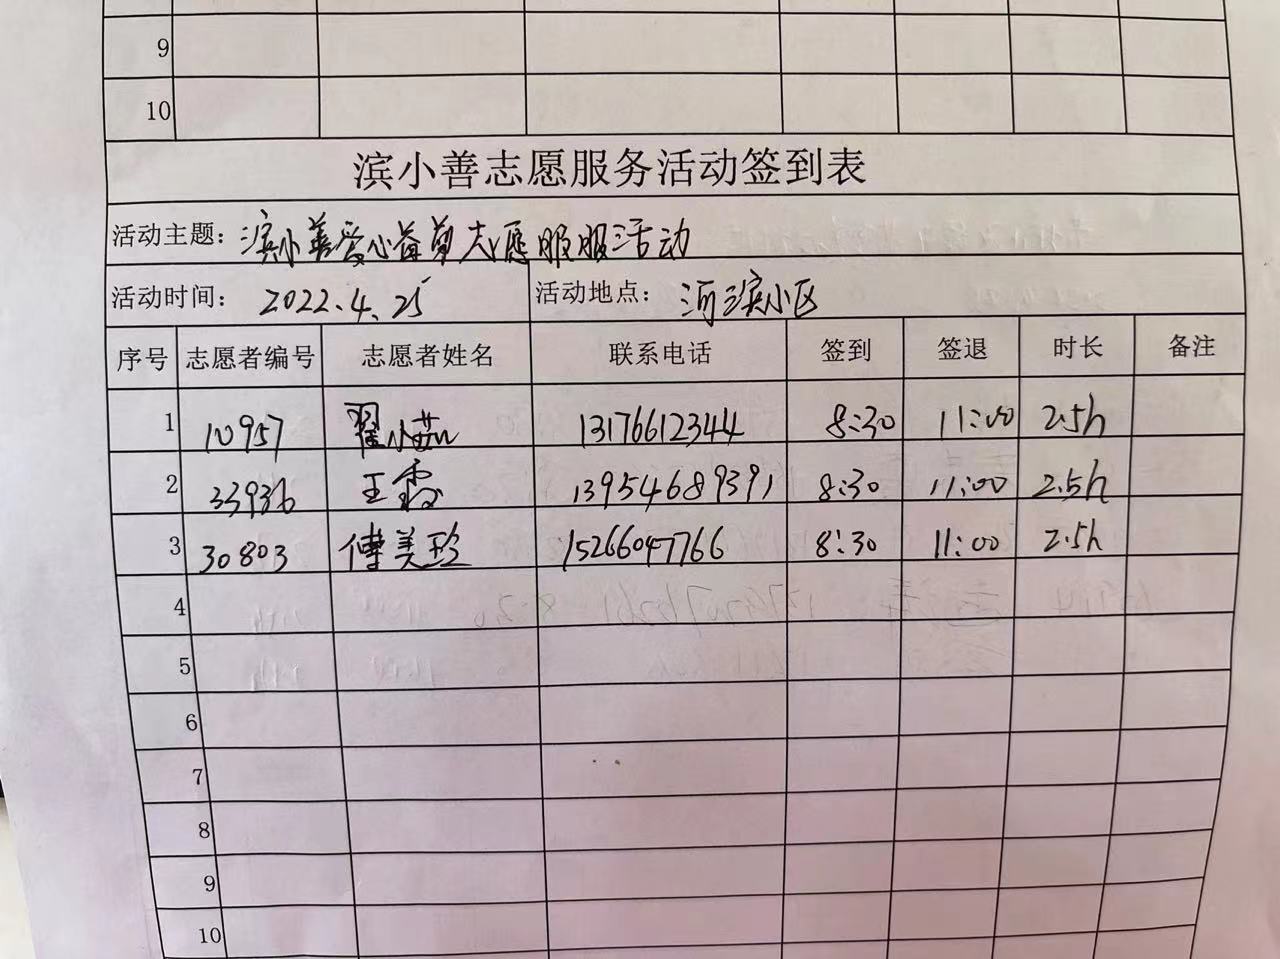 9
10
滨小善志愿服务活动签到表
活动主题: 滨小善爱心益剪志愿服服活动
活动时间: 2022.4.25 活动地点: 河滨小区
序号 志愿者编号 志愿者姓名 联系电话 签到 签退 时长 备注
1 10957 翟小茹 13176612344 8:30 11:00 2.5h
2 33936 王霞 13954689391 8:30 11:00 2.5h
3 30803 傅美珍 15266047766 8:30 11:00 2.5h
4
5
6
7
8
9
10